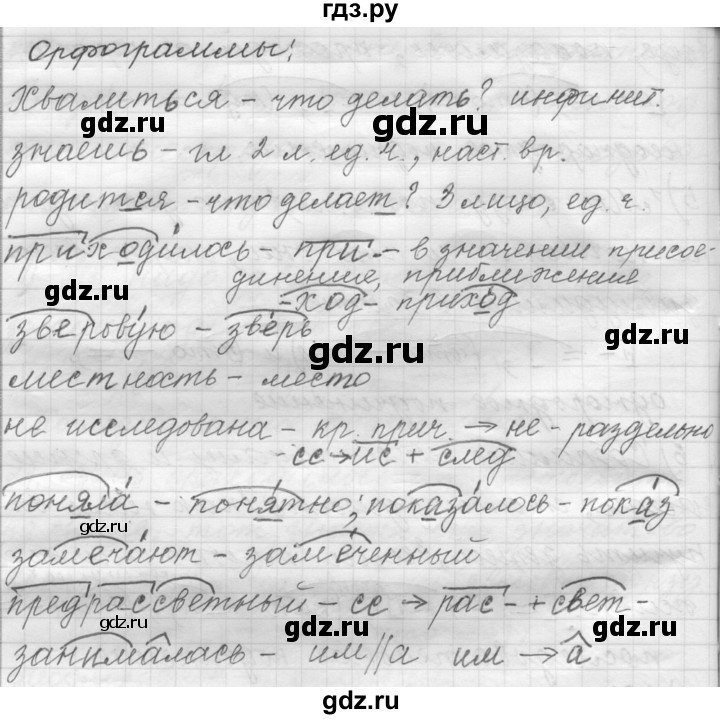 гдз.ру
Орфограммы:
Хвалиться - что делать? инфинит.
gdz.ru gdz.ru
знаешь - гл. 2 л. ед. ч., наст. вр.
родится - что делает? 3 лицо, ед. ч.
приходилось - при- - в значении присое-
динение, приближения
gdz.ru gdz.ru
-ход- приход
зверовую - зверь
gdz.ru
местность - место
не исследована - кр. прич. → не - раздельно
- сс → ис + след
gdz.ru gdz.ru
поняла - понятно; показалось - показ
gdz.ru gdz.ru
замечают - замеченный
предрассветный - сс → рас- + свет-
gdz.ru gdz.ru
занималась - им//а им → а
gdz.ru gdz.ru